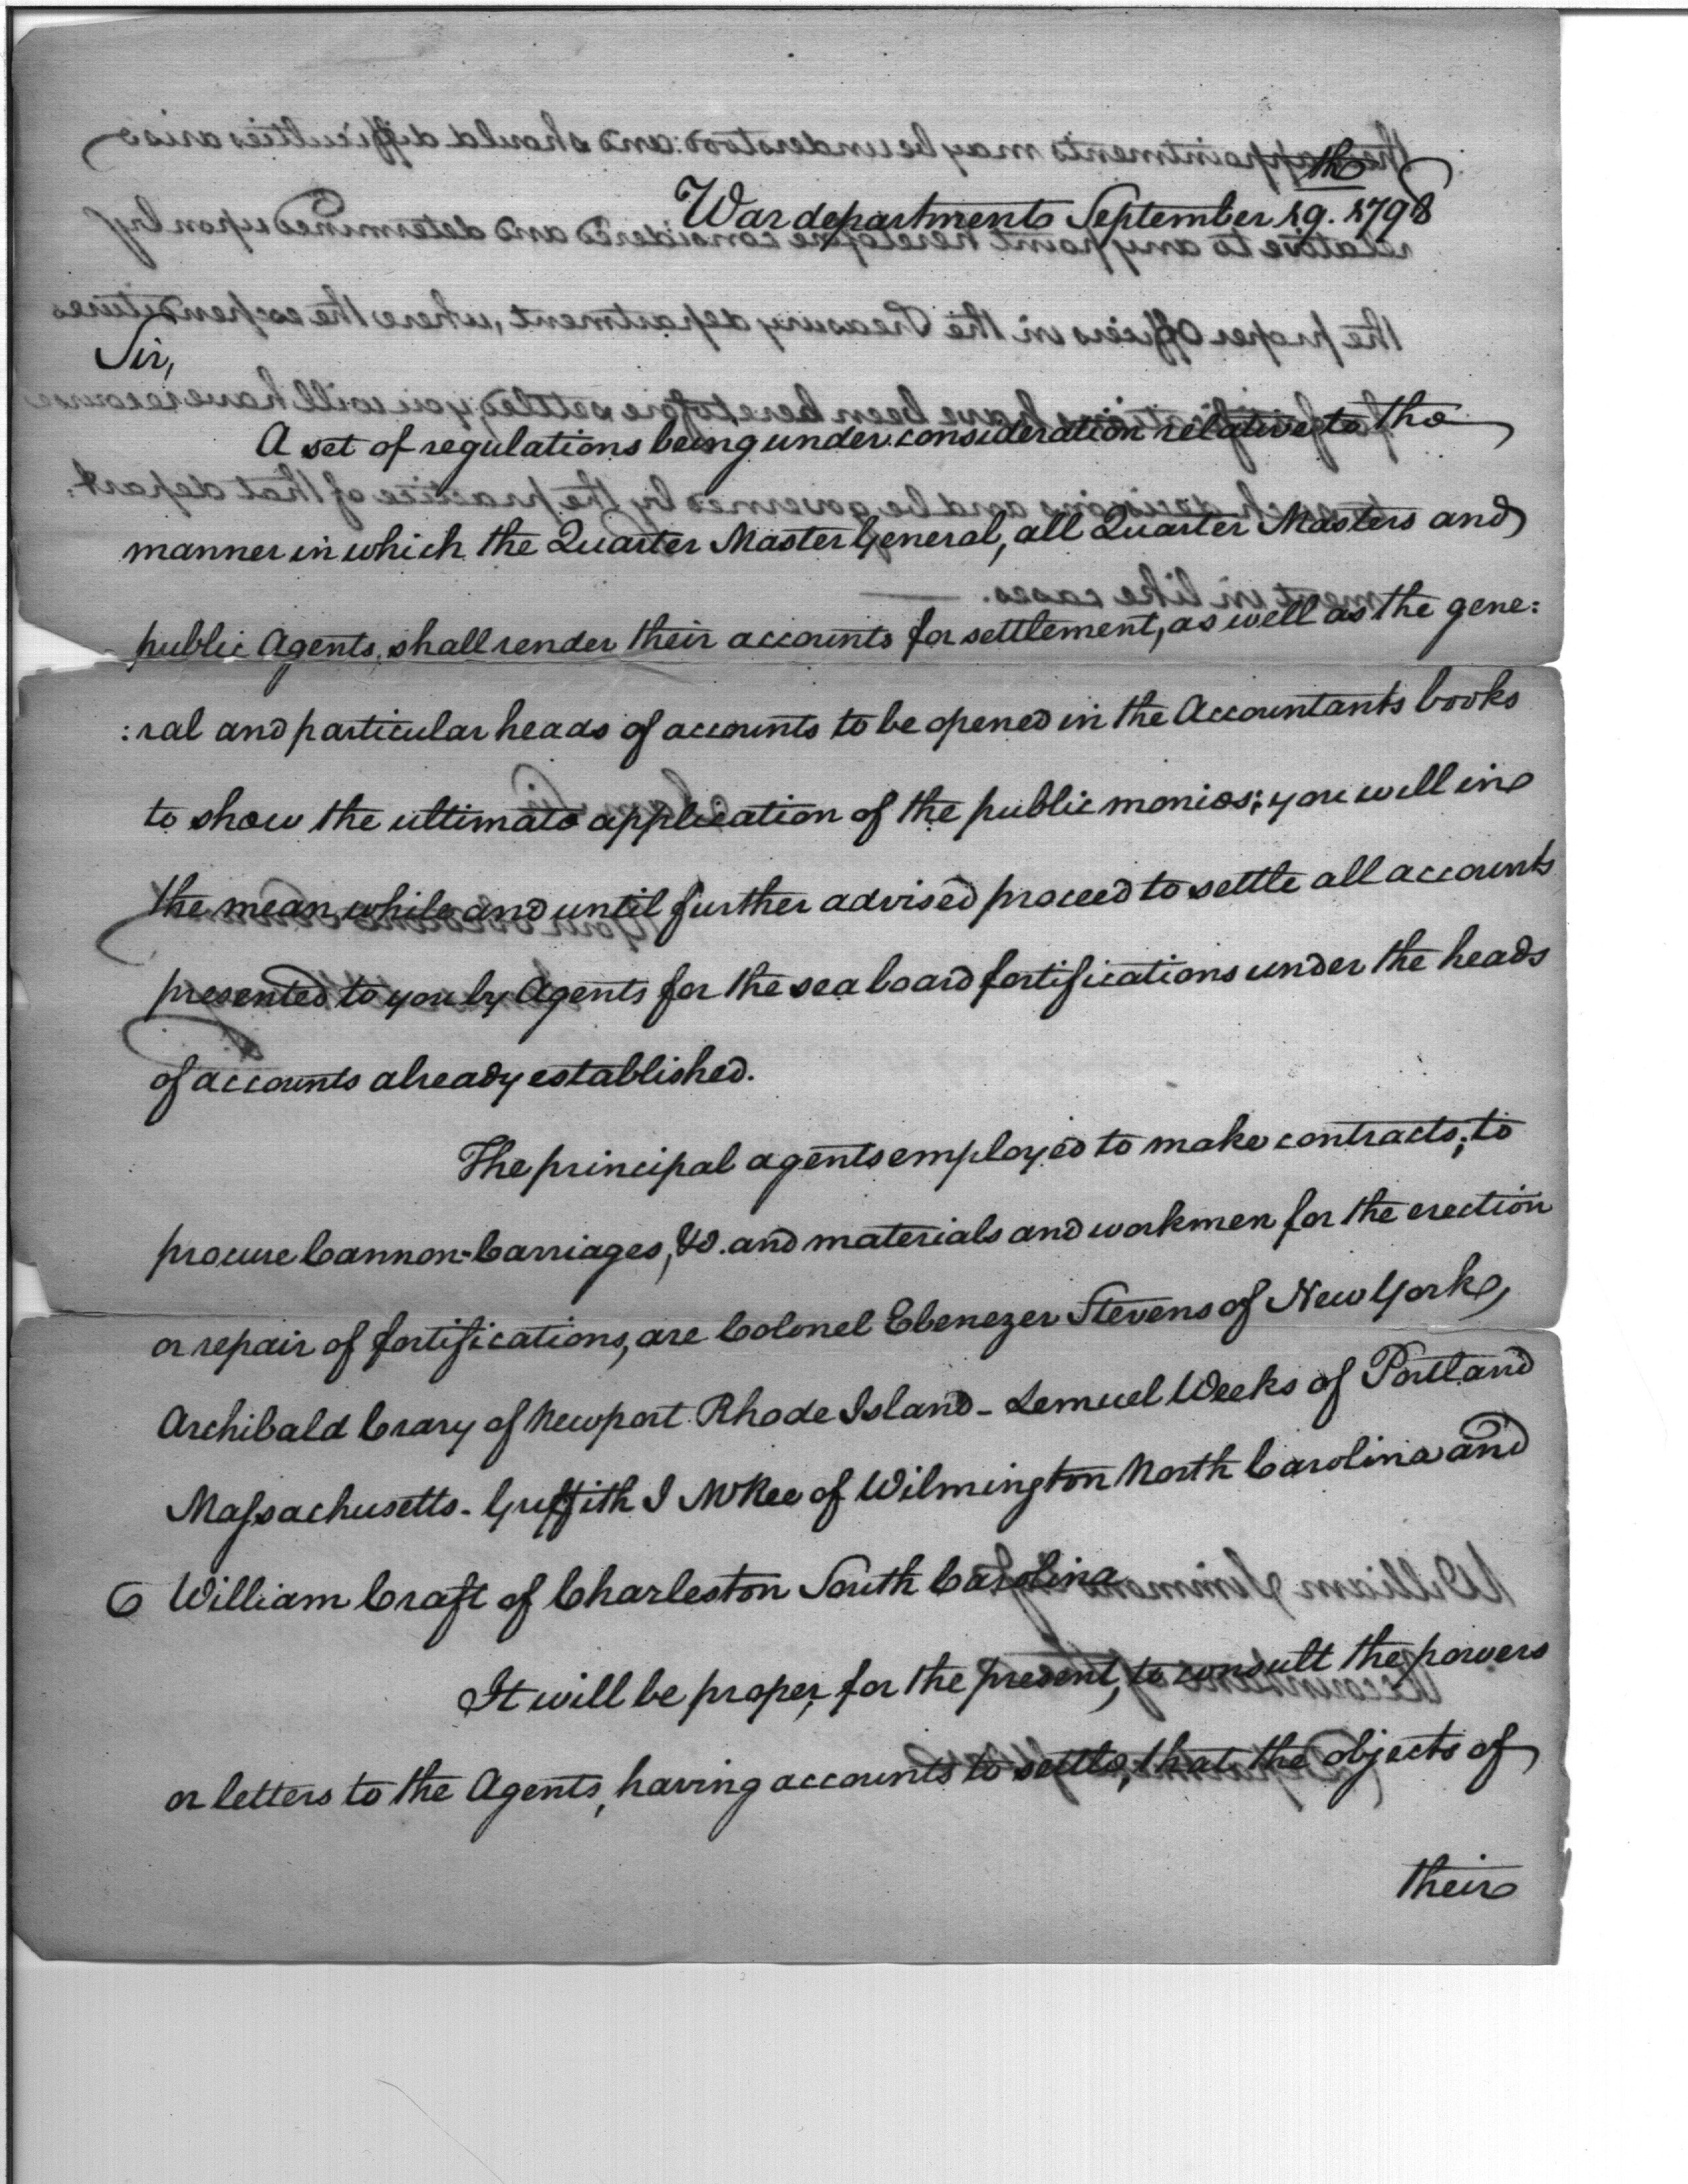 War department September 19.th 1798
Sir,
A set of regulations being under consideration relative to the
manner in which the Quarter Master General, all Quarter Masters and
public Agents, shall render their accounts for settlement, as well as the gene:
:ral and particular heads of accounts to be opened in the Accountants books
to show the ultimate application of the public monies; you will in
the mean while and until further advised proceed to settle all accounts
presented to you by Agents for the sea board fortifications under the heads
of accounts already established.
The principal agents employed to make contracts; to
procure Cannon-Carriages, &c. and materials and workmen for the erection
or repair of fortifications, are Colonel Ebenezer Stevens of New York,
Archibald Crary of Newport Rhode Island - Lemuel Weeks of Portland
Massachusetts - Griffith J McRee of Wilmington North Carolina and
William Craft of Charleston South Carolina
It will be proper, for the present, to consult the powers
or letters to the Agents, having accounts to settle, that the objects of
their